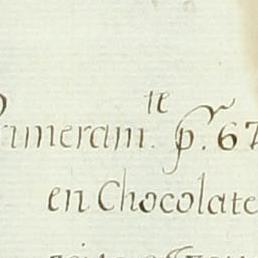 Primeram.te p.r 67
en Chocolate